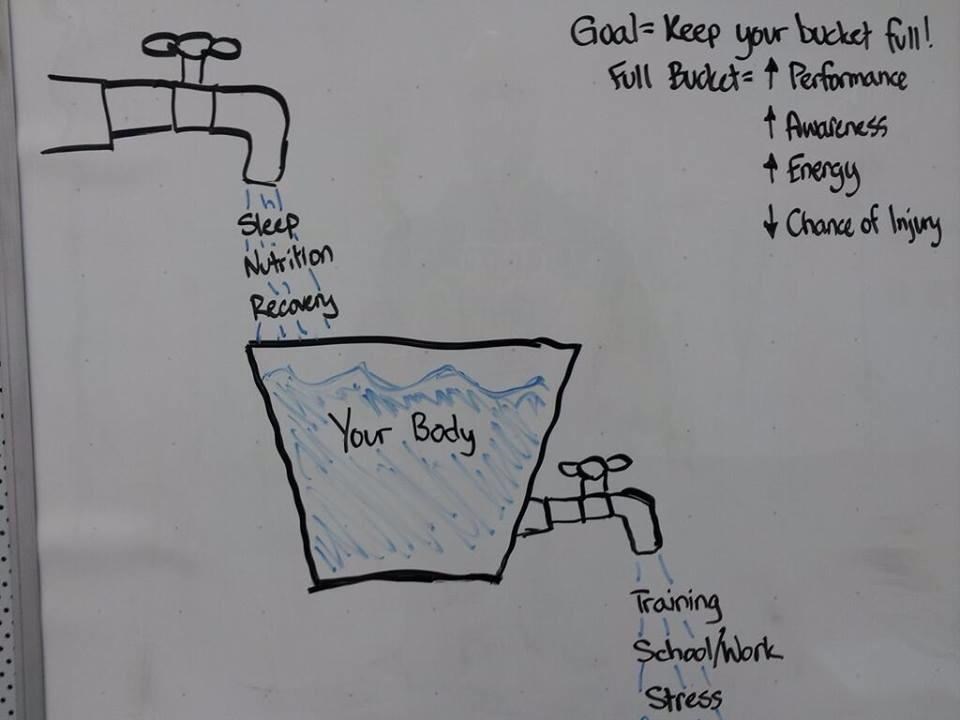 Goal= Keep your bucket full!
Full Bucket= ↑ Performance
↑ Awareness
↑ Energy
↓ Chance of Injury
Sleep
Nutrition
Recovery
Your Body
Training
School/Work
Stress